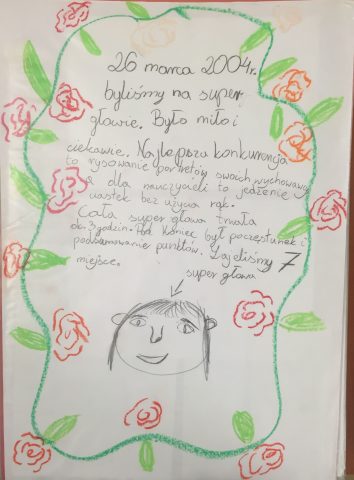 26 marca 2004r.
byliśmy na super
głowie. Było miło i
ciekawie. Najlepsza konkurencja
to rysowanie portretów swoich wychowawcą
a dla nauczycieli to jedzenie
ciastek bez użycia rąk.
Cała super głowa trwała
ok. 3 godzin. Pod koniec był poczęstunek i
podsumowanie punktów. Zajeliśmy 7
miejsce.
super głowa